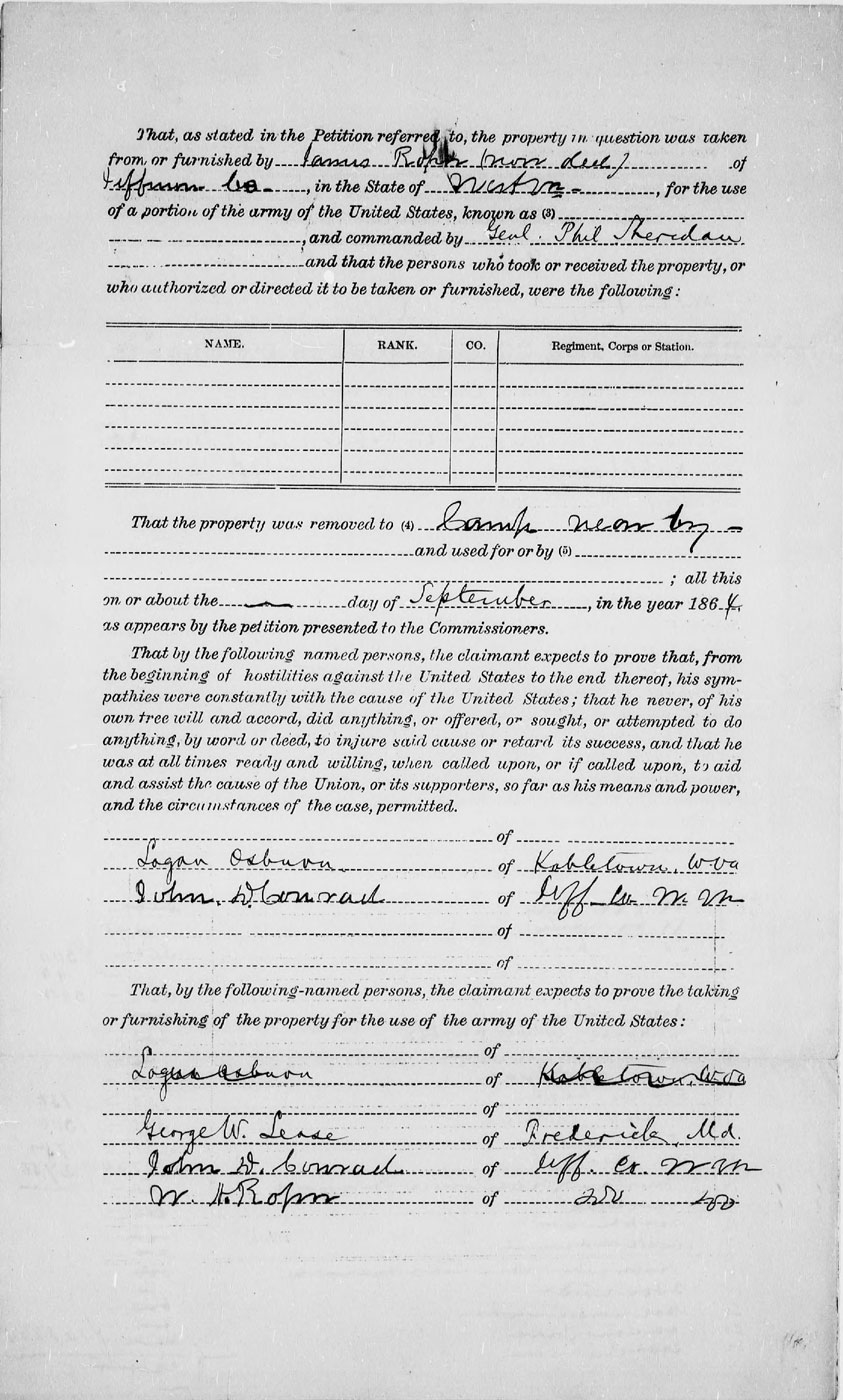 That, as stated in the Petition referred to, the property in question was taken
from or furnished by James Roper (now decd) of
Jefferson Co - , in the State of West Va - , for the use
of a portion of the army of the United States, known as (3)
, and commanded by Genl. Phil Sheridan
and that the persons who took or received the property, or
who authorized or directed it to be taken or furnished, were the following:
NAME. RANK. CO. Regiment, Corps or Station.
That the property was removed to (4) Camp near by -
and used for or by (5)
; all this
on or about the — day of September , in the year 1864.
as appears by the petition presented to the Commissioners.
That by the following named persons, the claimant expects to prove that, from
the beginning of hostilities against the United States to the end thereof, his sym-
pathies were constantly with the cause of the United States; that he never, of his
own free will and accord, did anything, or offered, or sought, or attempted to do
anything, by word or deed, to injure said cause or retard its success, and that he
was at all times ready and willing, when called upon, or if called upon, to aid
and assist the cause of the Union, or its supporters, so far as his means and power,
and the circumstances of the case, permitted.
of
Logan Osburn of Kabletown, W.Va
John. D. Conrad of Jeff Co W. Va
of
of
That, by the following-named persons, the claimant expects to prove the taking
or furnishing of the property for the use of the army of the United States:
of
Logan Osburn of Kabletown, W.Va
of
George W. Lease of Frederick, Md.
John D. Conrad of Jeff. Co. W Va
W. H. Roper of do do